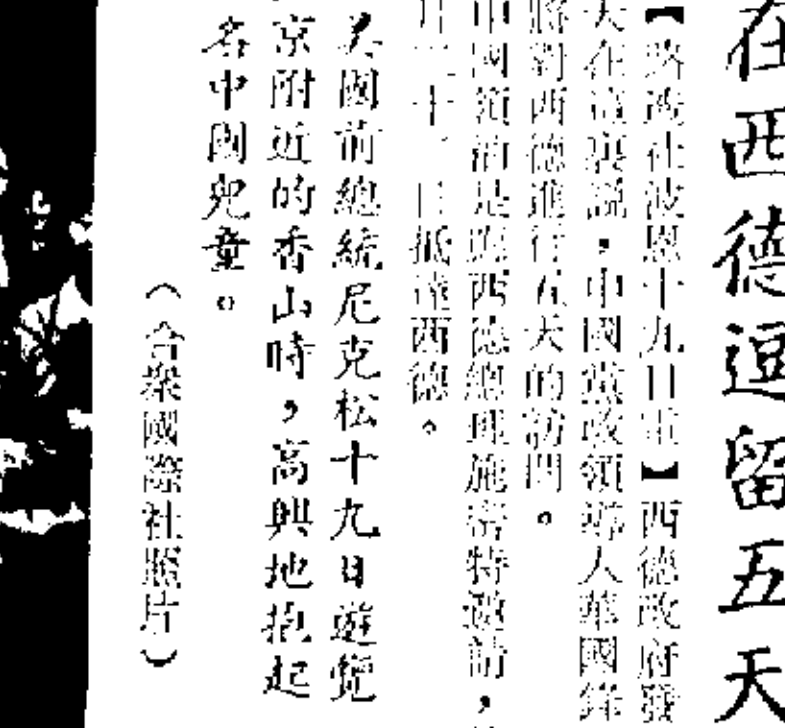 在西德逗留五天
【路透社波恩十九日電】西德政府發
天在這裏說,中國黨政領導人華國鋒
將對西德進行五天的訪問。
中國領袖是應西德總理施密特邀請,
月二十一日抵達西德。
美國前總統尼克松十九日遊覽
京附近的香山時,高興地抱起
名中國兒童。
(合衆國際社照片)